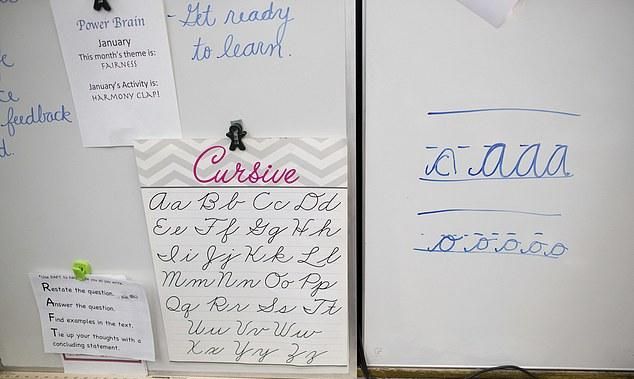 Power Brain
January
This month's theme is:
FAIRNESS
January's Activity is:
HARMONY CLAP!
- Get ready
to learn.
feedback
d.
Cursive
Aa Bb Cc Dd
Ee Ff Gg Hh
Ii Jj Kk Ll
Mm Nn Oo Pp
Qq Rr Ss Tt
Uu Vv Ww
Xx Yy Zz
Restate the question.
Answer the question.
Find examples in the text.
Tie up your thoughts with a
concluding statement.
a a a a
o o o o o